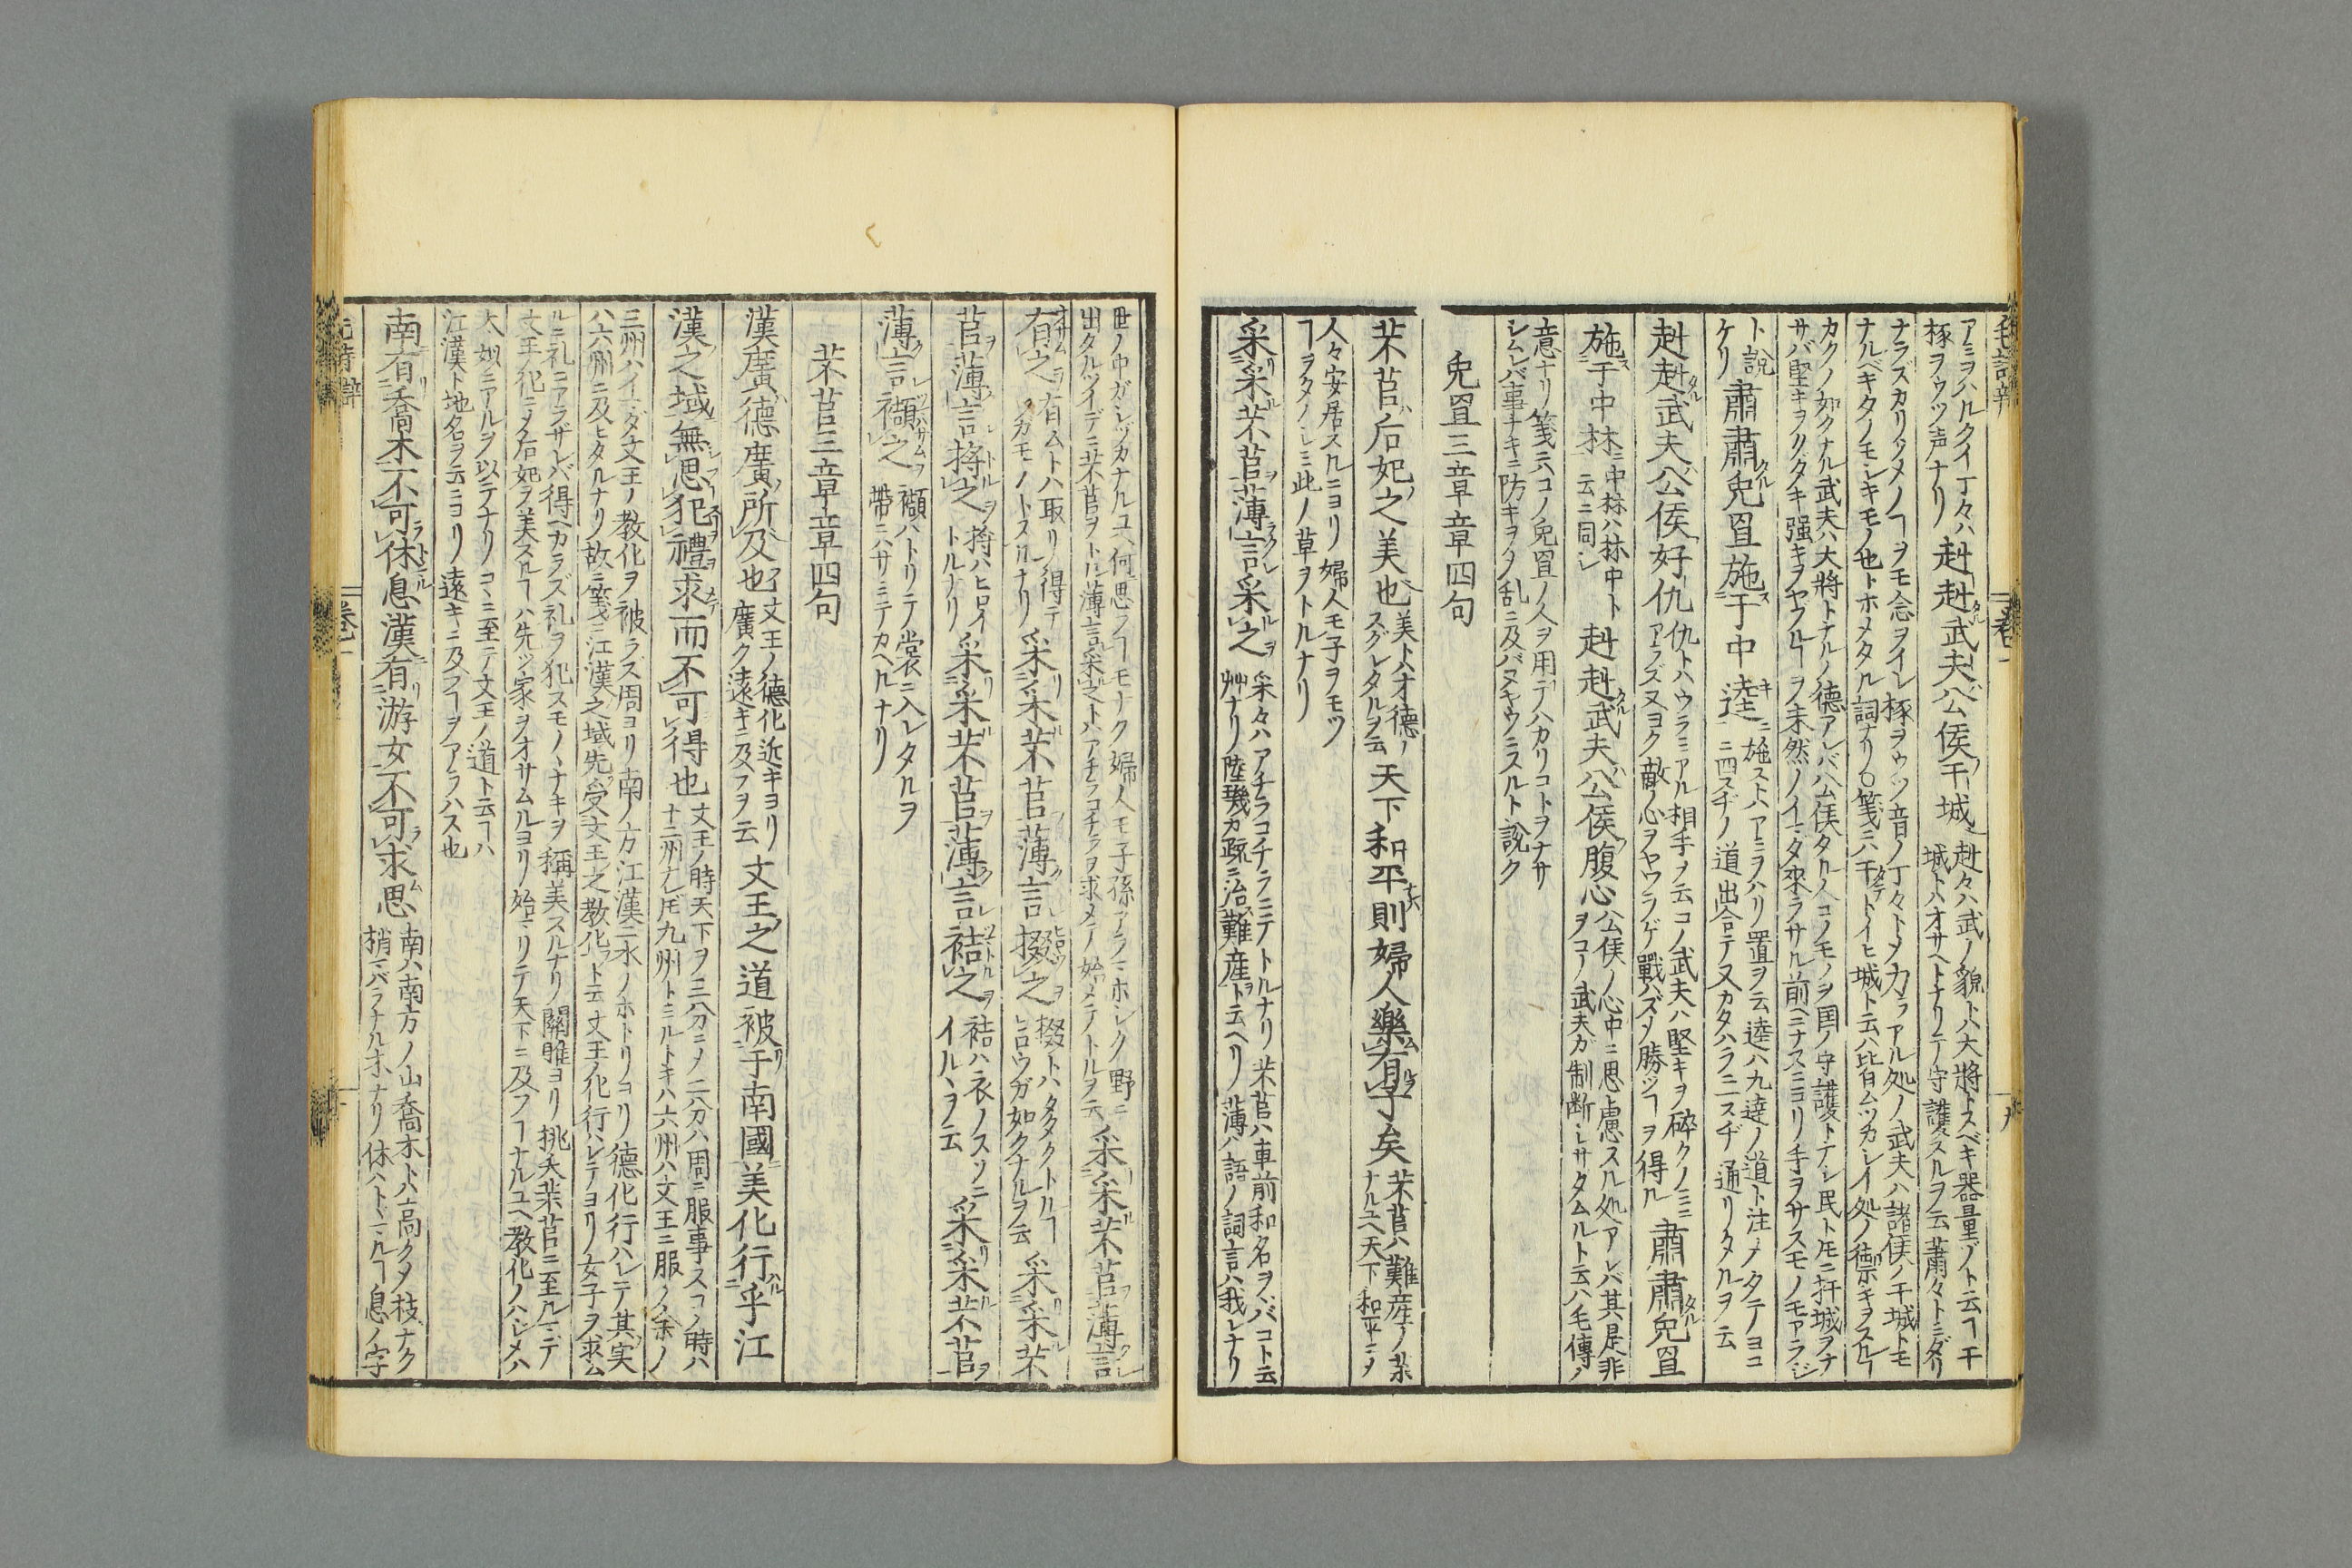 アミヲハルクイ丁々ハ
椓ヲウツ声ナリ
赳赳武夫公侯干城
赳々ハ武ノ貌トハ大將トスベキ器量ゾト云フ干
城トハオサヘトナリテ守護スルヲ云蕭々トミダリ
ナラズカリソメノヿヲモ念ヲイレ椓ヲウツ音ノ丁々トメ力ラアル処ノ武夫ハ諸侯ノ干城トモ
ナルベキタノモシキモノ也トホメタル詞ナリ○箋ニハ干トイヒ城ト云ハ皆ムツカシイ処ノ禦キヲスルヿ
カクノ如クナル武夫ハ大將トナルノ德アレバ公侯タル人コノモノヲ国ノ守護トナシ民トモニ扞城ヲナ
サバ堅キヲクダキ强キヲヤブルヿヲ未然ノイマダ來ラサル前ヘニナスニヨリ手ヲサスモノモアラジ
ト說
ケリ
肅肅兔罝施于中逵
施ストハアミヲハリ置ヲ云逵ハ九逹ノ道ト注メタテヨコ
ニ四スヂノ道出合テ又カタハラニ一スヂ通リタルヲ云
赳赳武夫公侯好仇
仇トハウラミアル相手ヲ云コノ武夫ハ堅キヲ碎クノミニ
アラズ又ヨク敵ノ心ヲヤワラゲ戰ハズメ勝ツヿヲ得ル
肅肅兔罝
施于中林
中林ハ林中ト
云ニ同シ
赳赳武夫公侯腹心
公侯ノ心中ニ思慮スル処アレバ其是非
ヲコノ武夫ガ制断シサダムルト云ハ毛傳ノ
意ナリ箋ニハコノ兔罝ノ人ヲ用テハカリコトヲナサ
シムレバ事ナキニ防キヲメ乱ニ及バヌキウニスルト說ク
兔罝三章章四句
芣苢后妃之美也
美トハオ德ノ
スグレタルヲ云
天下和平則婦人樂有子矣
芣苢ハ難産ノ薬
ナルユヘ天下和平ニメ
人々安居スルニヨリ婦人モ子ヲモツ
ヿヲタノシミ此ノ草ヲトルナリ
采采芣苢薄言采之
采々ハアチラコチラニテトルナリ芣苢ハ車前和名ヲバコト云
艸ナリ陸璣ガ疏ニ治難産ト云ヘリ薄ハ語ノ詞言ハ我レナリ
世ノ中ガシヅカナルユヘ何思フヿモナク婦人モ子孫アラマホシク野ニ
出タルツイデニ芣苢ヲトル薄言采之トハアチラコチラヲ求メテ始メテトルヲ云
采采芣苢薄言
有之
有ムトハ取リ得テ
ワガモノトスルナリ
采采芣苢薄言掇之
掇トハタタクトルヿ
ヒロウガ如クナルヲ云
采采芣
苢薄言捋之
捋ハヒロイ
トルナリ
采采芣苢薄言袺之
袺ハ衣ノスソニ
イルヽヲ云
采采芣苢
薄言襭之
襭ハトリテ裳ニ入レタルヲ
帶ニハサミテカヘルナリ
芣苢三章章四句
漢廣德廣所及也
文王ノ德化近キヨリ
廣ク遠キニ及フヲ云
文王之道被于南國美化行乎江
漢之域無思犯禮求而不可得也
文王ノ時天下ヲ三ツ分ニメ二分ハ周ニ服事スコノ時ハ
十二州ナレトモ九州トミルトキハ六州ハ文王ニ服メ余ノ
三州ハイマダ文王ノ教化ヲ被ラズ周ヨリ南ノ方江漢二水ノホトリヨリ德化行ハレテ其実
ハ六州ニ及ヒタルナリ故ニ箋ニ江漢之域先受文王之教化ト云文王ノ化行ハレテヨリ女子ヲ求ム
ルニ礼ニアラザレバ得ベカラズ礼ヲ犯スモノヽナキヲ稱美スルナリ關雎ヨリ挑夭芣苢ニ至ルマデ
文王化ニメ后妃ヲ美スルヿハ先ツ家ヲオサムルヨリ始マリテ天下ニ及フヿナルユヘ教化ノハシメハ
大姒ニアルヲ以テナリコヽニ至テ文王ノ道ト云ヿハ
江漢ト地名ヲ云ニヨリ遠キニ及フヿヲアラハス也
南有喬木不可休息漢有游女不可求思
南ハ南方ノ山喬木トハ高クメ枝ナク
梢マバラナル木ナリ休ハトヾマルヿ息ノ字